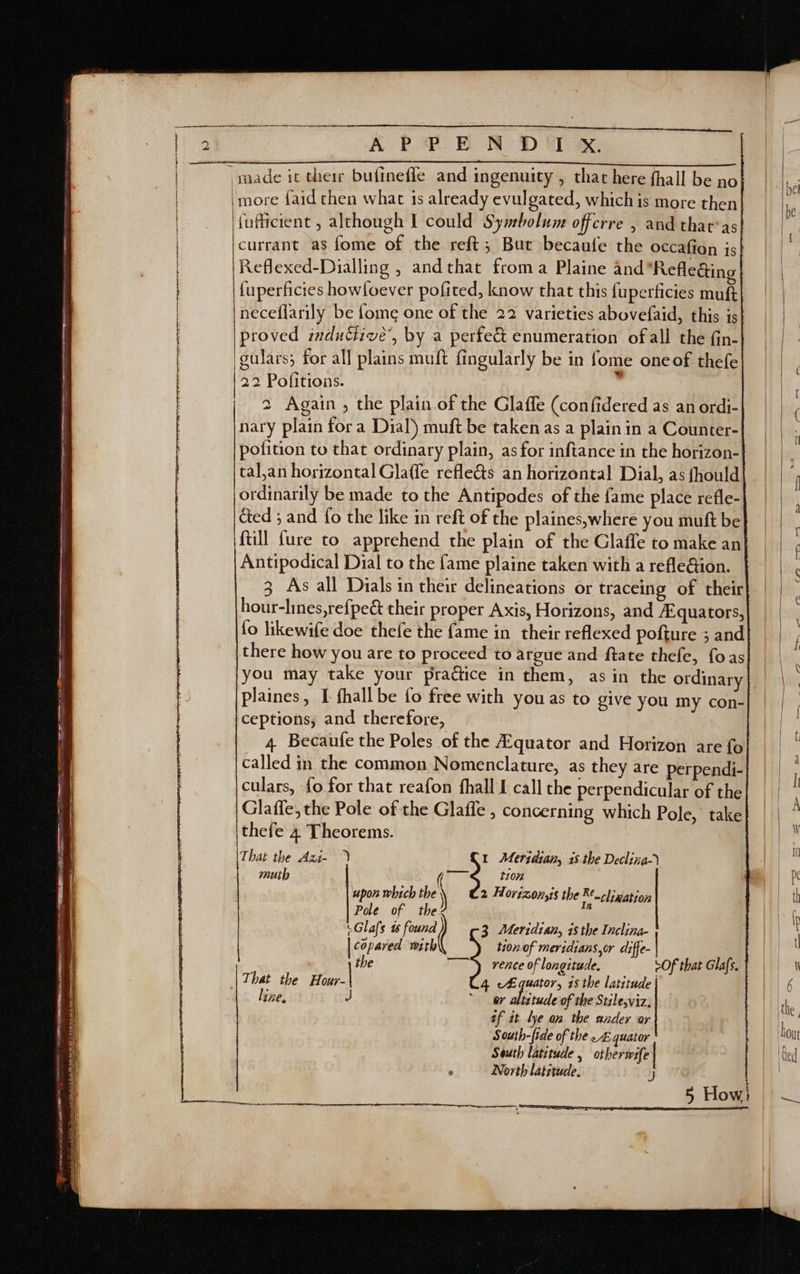 2 APPENDIX.
made it their busineſſe and ingenuity, that here ſhall be no
more ſaid then what is already evulgated, which is more then
ſufficient, although I could Symbolum offerre, and that as
currant as ſome of the reſt; But becauſe the occaſion is
Reflexed-Dialling, and that from a Plaine and Reflecting
ſuperficies howſoever poſited, know that this ſuperficies muſt
neceſſarily be ſome one of the 22 varieties aboveſaid, this is
proved inductivè, by a perfect enumeration of all the ſin-
gulars; for all plains muſt ſingularly be in ſome one of theſe
22 Poſitions.
2 Again, the plain of the Glaſſe (conſidered as an ordi-
nary plain for a Dial) muſt be taken as a plain in a Counter-
poſition to that ordinary plain, as for inſtance in the horizon-
tal, an horizontal Glaſſe reflects an horizontal Dial, as ſhould
ordinarily be made to the Antipodes of the ſame place refle-
cted; and ſo the like in reſt of the plaines, where you muſt be
ſtill ſure to apprehend the plain of the Glaſſe to make an
Antipodical Dial to the ſame plaine taken with a reflection.
3 As all Dials in their delineations or traceing of their
hour-lines, reſpect their proper Axis, Horizons, and Æquators,
ſo likewiſe doe theſe the ſame in their reflexed poſture; and
there how you are to proceed to argue and ſtate theſe, ſo as
you may take your practice in them, as in the ordinary
plaines, I ſhall be ſo free with you as to give you my con-
ceptions; and therefore,
4 Becauſe the Poles of the Æquator and Horizon are ſo
called in the common Nomenclature, as they are perpendi-
culars, ſo for that reaſon ſhall I call the perpendicular of the
Glaſſe, the Pole of the Glaſſe, concerning which Pole, take
theſe 4 Theorems.
That the Azi-
muth
That the Hour-
line,
upon which the
Pole of the
Glaſs is found
cōpared with
the
1 Meridian, is the Declina-
tion
2 Horizon, is the Re-clination
In
3 Meridian, is the Inclina-
tion of meridians, or diffe-
rence of longitude.
4 Æquator, is the latitude
or altitude of the Stile, viz.
if it lye on the under or
South-ſide of the Æquator
South latitude, otherwiſe
North latitude.
Of that Glaſs.
5 How